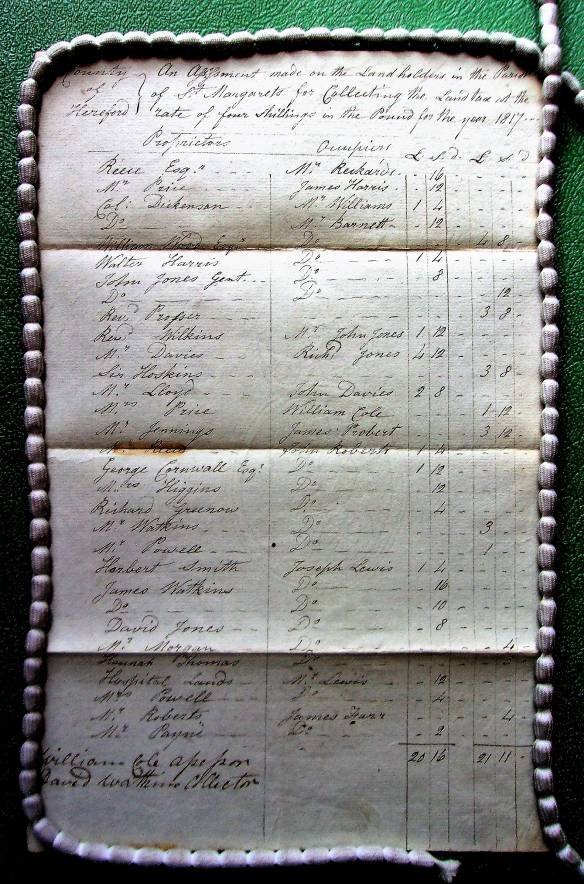 County of Hereford } An Assessment made on the Land holders in the Parish
of St Margarets for Collecting the Land tax at the
rate of four Shillings in the Pound for the year 1817
Proprietors Occupiers £ S. d. £ S d
Reece Esqr Mr Rickards 16
Mr Price James Harris 12
Col: Dickenson Mr Williams 1 4
Do Mr Barnett 12
William Wood Esqr Do 4 8
Walter Harris Do 1 4
John Jones Gent. Do 8
Do Do 12
Revd Prosser 3 8
Revd Wilkins Mr John Jones 1 12
Mr Davies Richd Jones 4 12
Sir Hoskins 3 8
Mr Lloyd John Davies 2 8
Mrs Price William Cole 1 12
Mr Jennings James Probert 3 12
Mr John Roberts 1 4
George Cornwall Esqr Do 1 12
Mrs Higgins Do 12
Richard Greenow Do 4
Mr Watkins Do 3
Mr Powell Do 1
Herbert Smith Joseph Lewis 1 4
James Watkins Do 16
Do Do 10
David Jones Do 8
Mr Morgan Do 4
Hannah Thomas Do
Hospital Lands Mr Lewis 12
Mrs Powell Do 4
Mr Roberts James Farr 4
Mr Payne Do 2
20 16 21 11
William Cole assessor
David Watkins Collector